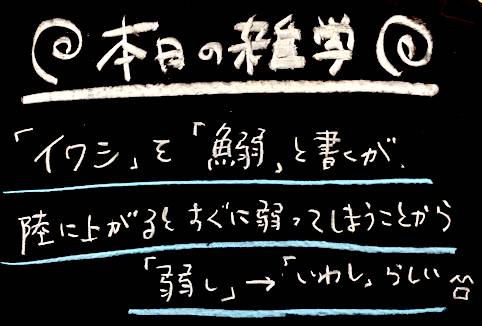 本日の雑学
「イワシ」を「鰯」と書くが、
陸に上がるとすぐに弱ってしまうことから
「弱し」→「いわし」らしい